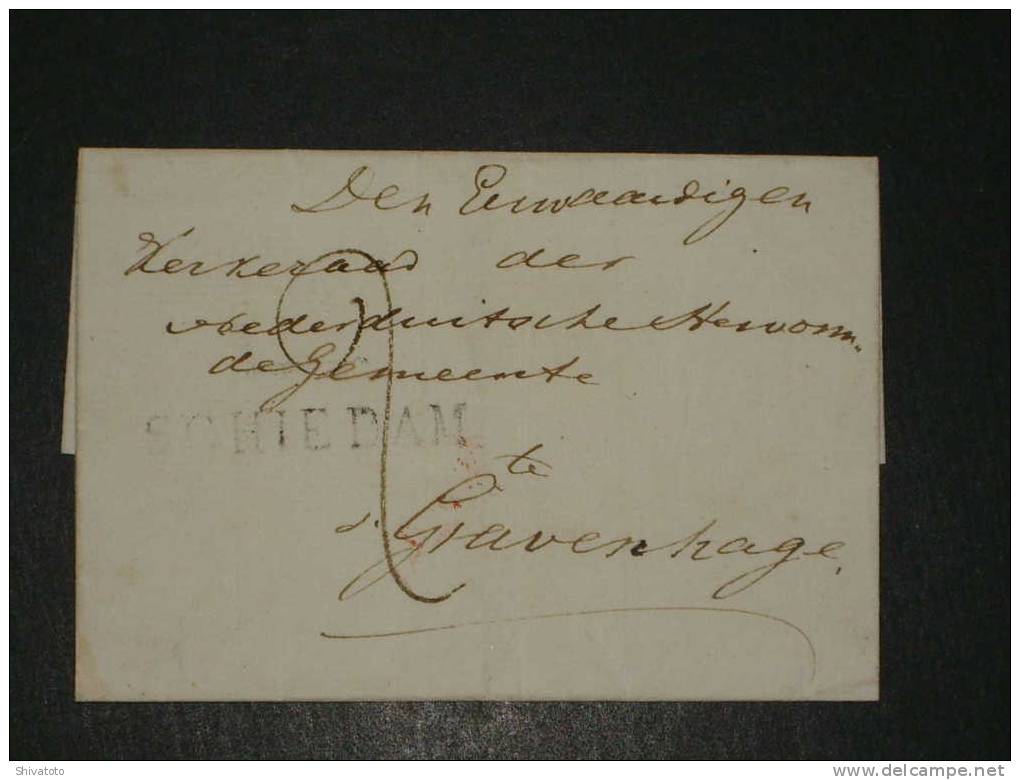 Den Eerwaardigen
Kerkeraad der
Nederduitsche Hervorm„
de Gemeente
SCHIEDAM
te
s' Gravenhage.
Shivatoto
www.delcampe.net